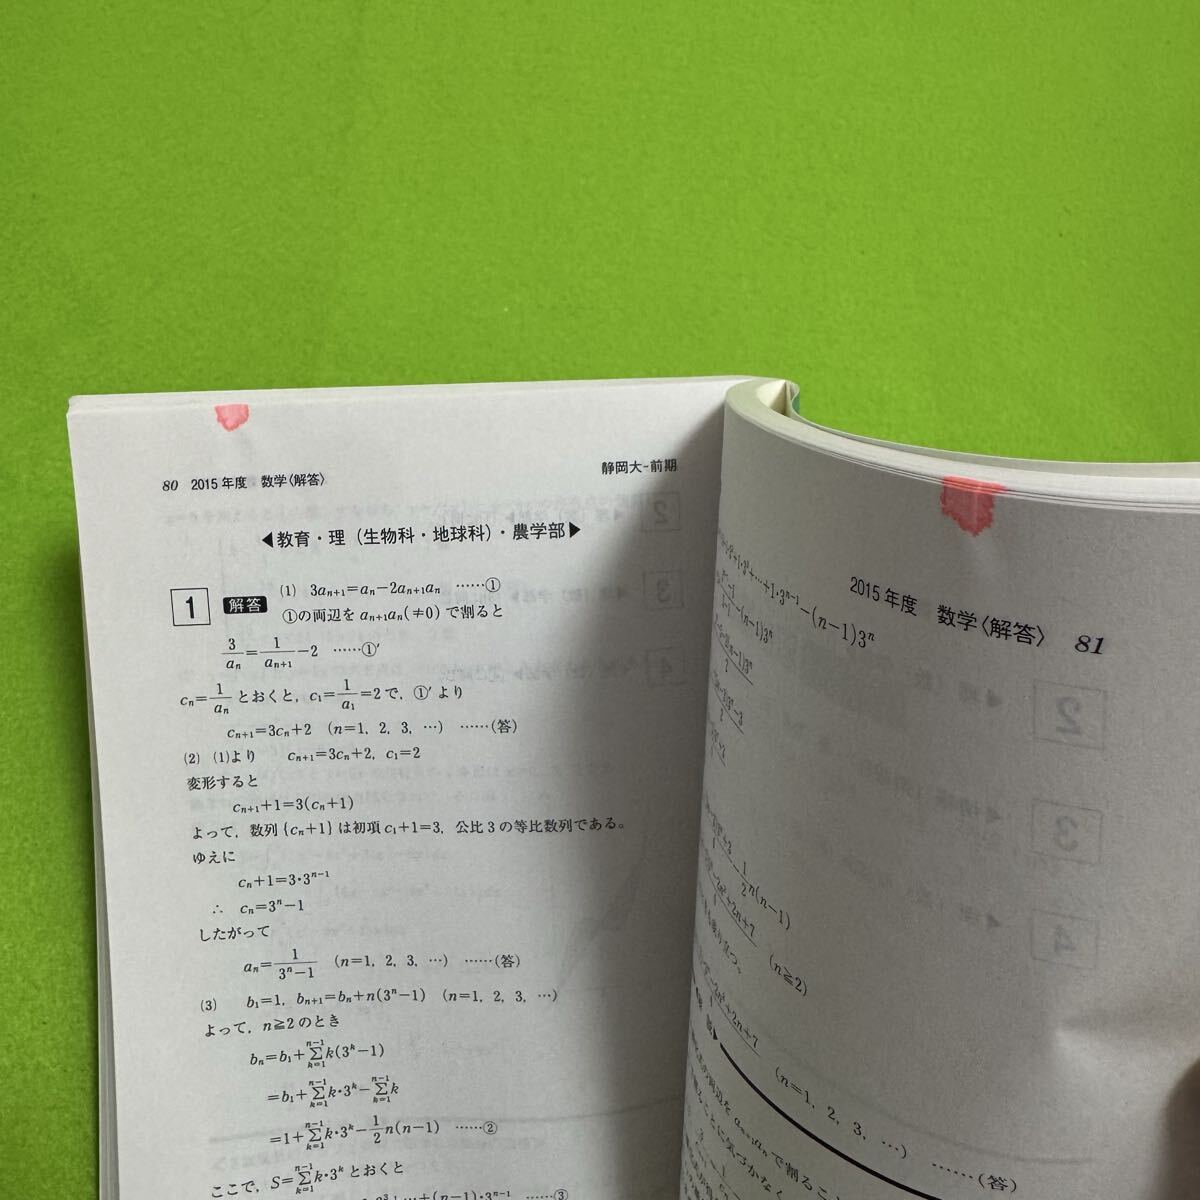 80 2015年度 数学〈解答〉
静岡大-前期
◀教育・理（生物科・地球科）・農学部▶
1 解答 (1) 3aₙ₊₁=aₙ−2aₙ₊₁aₙ ……①
①の両辺を aₙ₊₁aₙ(≠0) で割ると
3/aₙ=1/aₙ₊₁−2 ……①′
cₙ=1/aₙ とおくと，c₁=1/a₁=2 で，①′ より
cₙ₊₁=3cₙ+2 (n=1, 2, 3, …) ……(答)
(2) (1)より cₙ₊₁=3cₙ+2, c₁=2
変形すると
cₙ₊₁+1=3(cₙ+1)
よって，数列 {cₙ+1} は初項 c₁+1=3，公比 3 の等比数列である。
ゆえに
cₙ+1=3・3ⁿ⁻¹
∴ cₙ=3ⁿ−1
したがって
aₙ=1/(3ⁿ−1) (n=1, 2, 3, …) ……(答)
(3) b₁=1, bₙ₊₁=bₙ+n(3ⁿ−1) (n=1, 2, 3, …)
よって，n≧2 のとき
bₙ=b₁+Σ[k=1, n−1]k(3ᵏ−1)
=b₁+Σ[k=1, n−1]k・3ᵏ−Σ[k=1, n−1]k
=1+Σ[k=1, n−1]k・3ᵏ−1/2 n(n−1) ……②
ここで，S=Σ[k=1, n−1]k・3ᵏ とおくと
…+(n−1)・3ⁿ⁻¹ ……③
2015年度 数学〈解答〉 81
+…+1・3ⁿ⁻¹−(n−1)3ⁿ
−(n−1)3ⁿ
−1/2 n(n−1)
−2n²+2n+7 (n≧2)
−2n²+2n+7
(n=1, 2, 3, …) ……(答)
の両辺を aₙ₊₁aₙ で割ること
ことに気づかなく